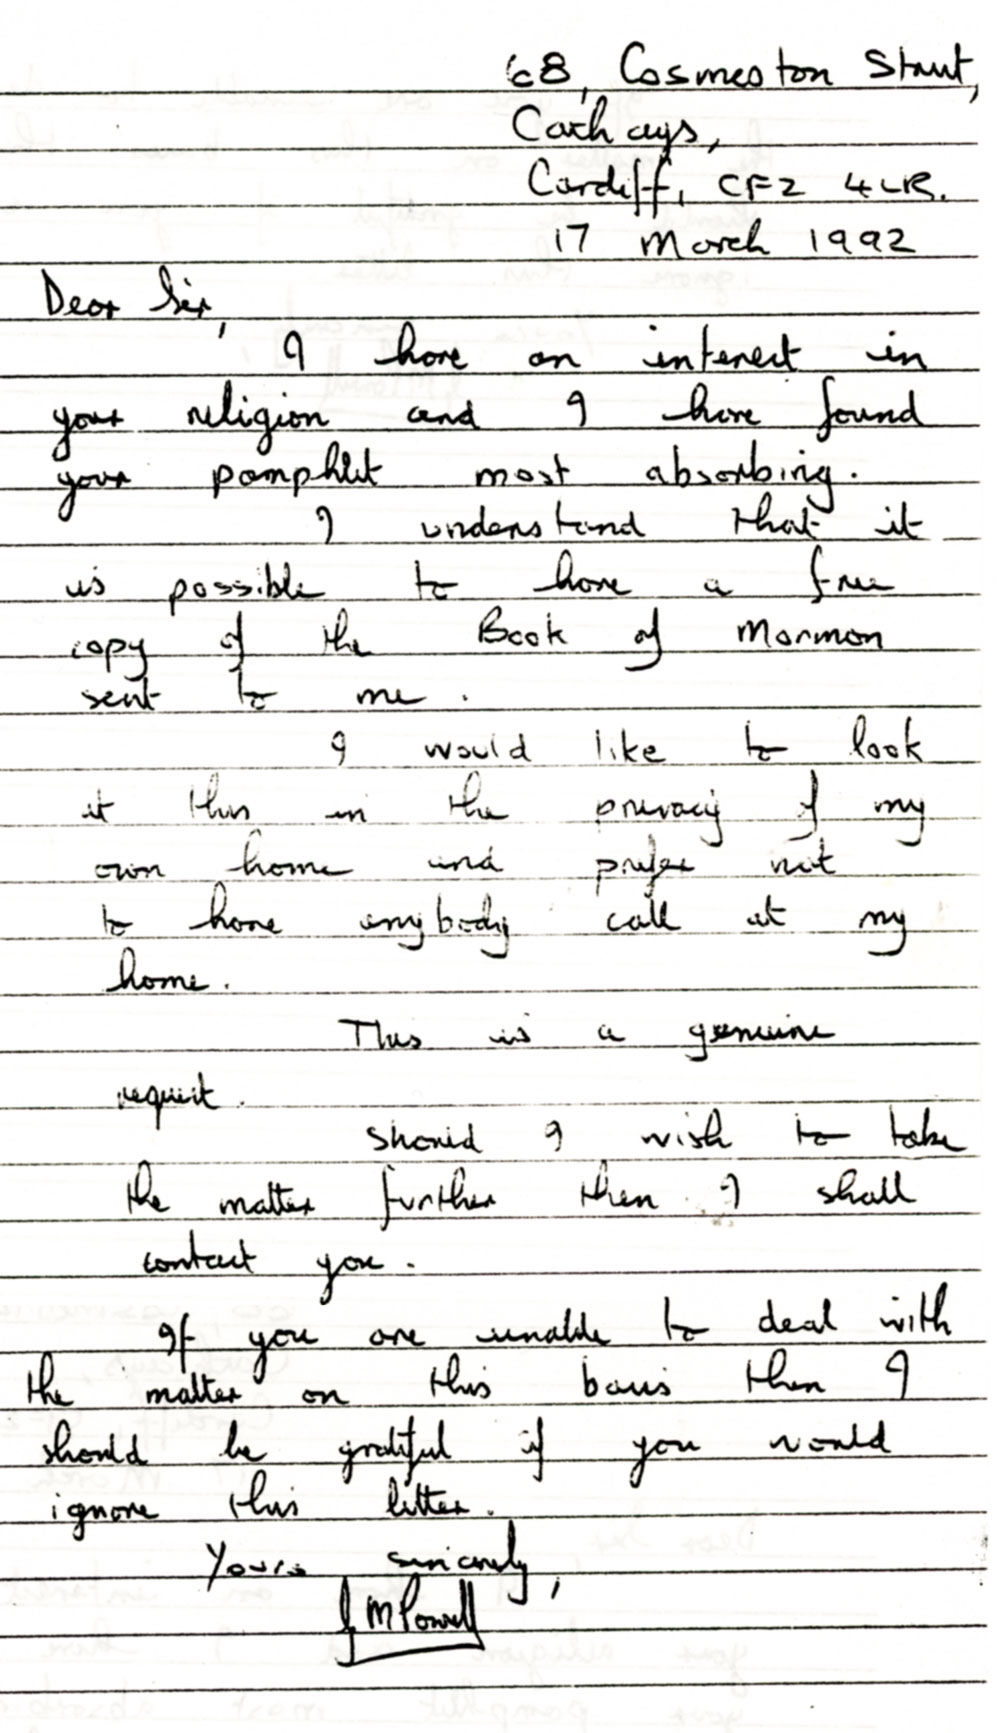 68, Cosmeston Street,
Cathays,
Cardiff, CF2 4LR.
17 March 1992
Dear Sir,
I have an interest in
your religion and I have found
your pamphlet most absorbing.
I understand that it
is possible to have a free
copy of the Book of Mormon
sent to me.
I would like to look
at this in the privacy of my
own home and prefer not
to have anybody call at my
home.
This is a genuine
request.
Should I wish to take
the matter further then I shall
contact you.
If you are unable to deal with
the matter on this basis then I
should be grateful if you would
ignore this letter.
Yours sincerely,
J M Powell